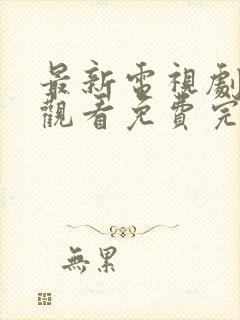 最新電視劇
觀看免費完
無累